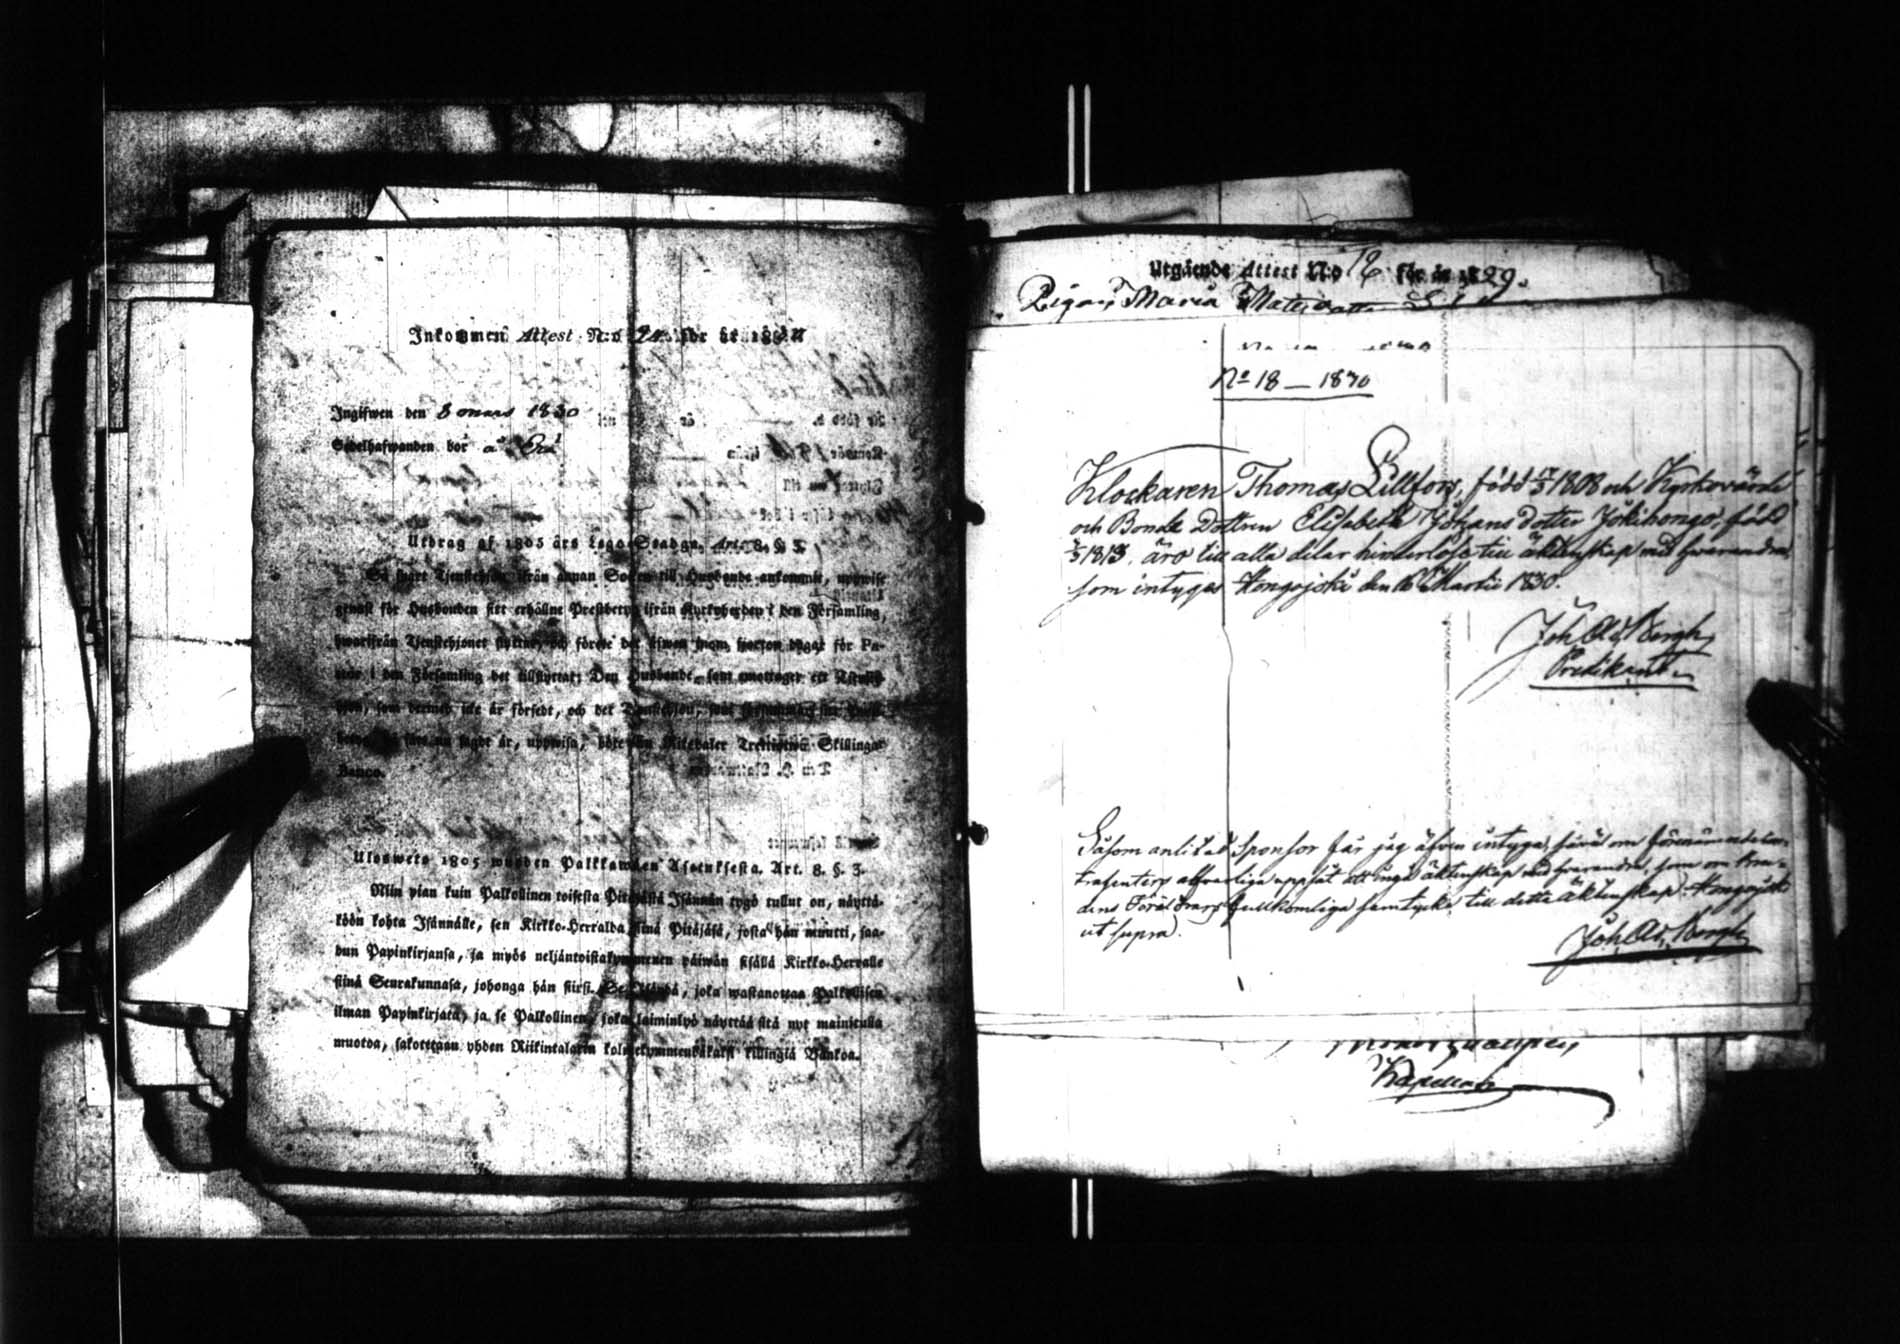 Inkommen Attest N:o 24 för år 18
Ingifwen den 8 mars 1830
Sedelhafwanden bor å
Utdrag af 1805 års Lego-Stadga, Art. 8. §. 3.
Så snart Tjenstehjon ifrån annan Socken till Husbonde ankommit, uppwise
genast för Husbonden sitt erhållne Prestbetyg ifrån Kyrkoherden i den Församling,
hwarifrån Tjenstehjonet flyttat, och förete det äfwen inom fjorton dagar för Pa-
stor i den Församling det tillflyttat; Den Husbonde, som emottager ett Tjenste-
hjon, som dermed icke är försedt, och det Tjenstehjon, som
sagdt är, uppwisa, böte en Riksdaler Trettiotwå Skillingar
Banco.
Ulosweto 1805 wuoden Palkkawäen Asetuksesta. Art. 8. §. 3.
Niin pian kuin Palkollinen toisesta Pitäjästä Isännän tygö tullut on, näyttä-
köön kohta Isännälle, sen Kirkko-Herralda siinä Pitäjäsä, josta hän muutti, saa-
dun Papinkirjansa, ja myös neljäntoistakymmenen päiwän sisällä Kirkko-Herralle
siinä Seurakunnasa, johonga hän siirsi. Se Isändä, joka wastanottaa Palkollisen
ilman Papinkirjata, ja se Palkollinen, joka laiminlyö näyttää sitä nyt mainitulla
muotoa, sakotetaan yhden Riikintalarin kolmekymmenkäkaksi killingiä Bankoa.
Utgående Attest N:o 12 för år 1829.
Pigan Maria Matsdotter
No 18 — 1830
Klockaren Thomas Lillfors, född 1808 och Kyrkovärde
och Bonde Dottren Elisabeth Johans dotter Jokihongo, född
1813, äro till alla delar hinderlöse till äktenskap med hwarandra,
som intyges Kongojoki den 6 Martii 1830.
Joh Ad Bergh,
Predikant.
Såsom anlitad Sponsor får jag äfven intyga, såväl om förenämnde Con-
trahenters alfvarliga uppsåt att ingå äktenskap med hvarandra, som om
dens Föräldrars fullkomliga samtycke till detta äktenskap. Kongojoki
ut supra.
Joh Ad Bergh
Kapellan